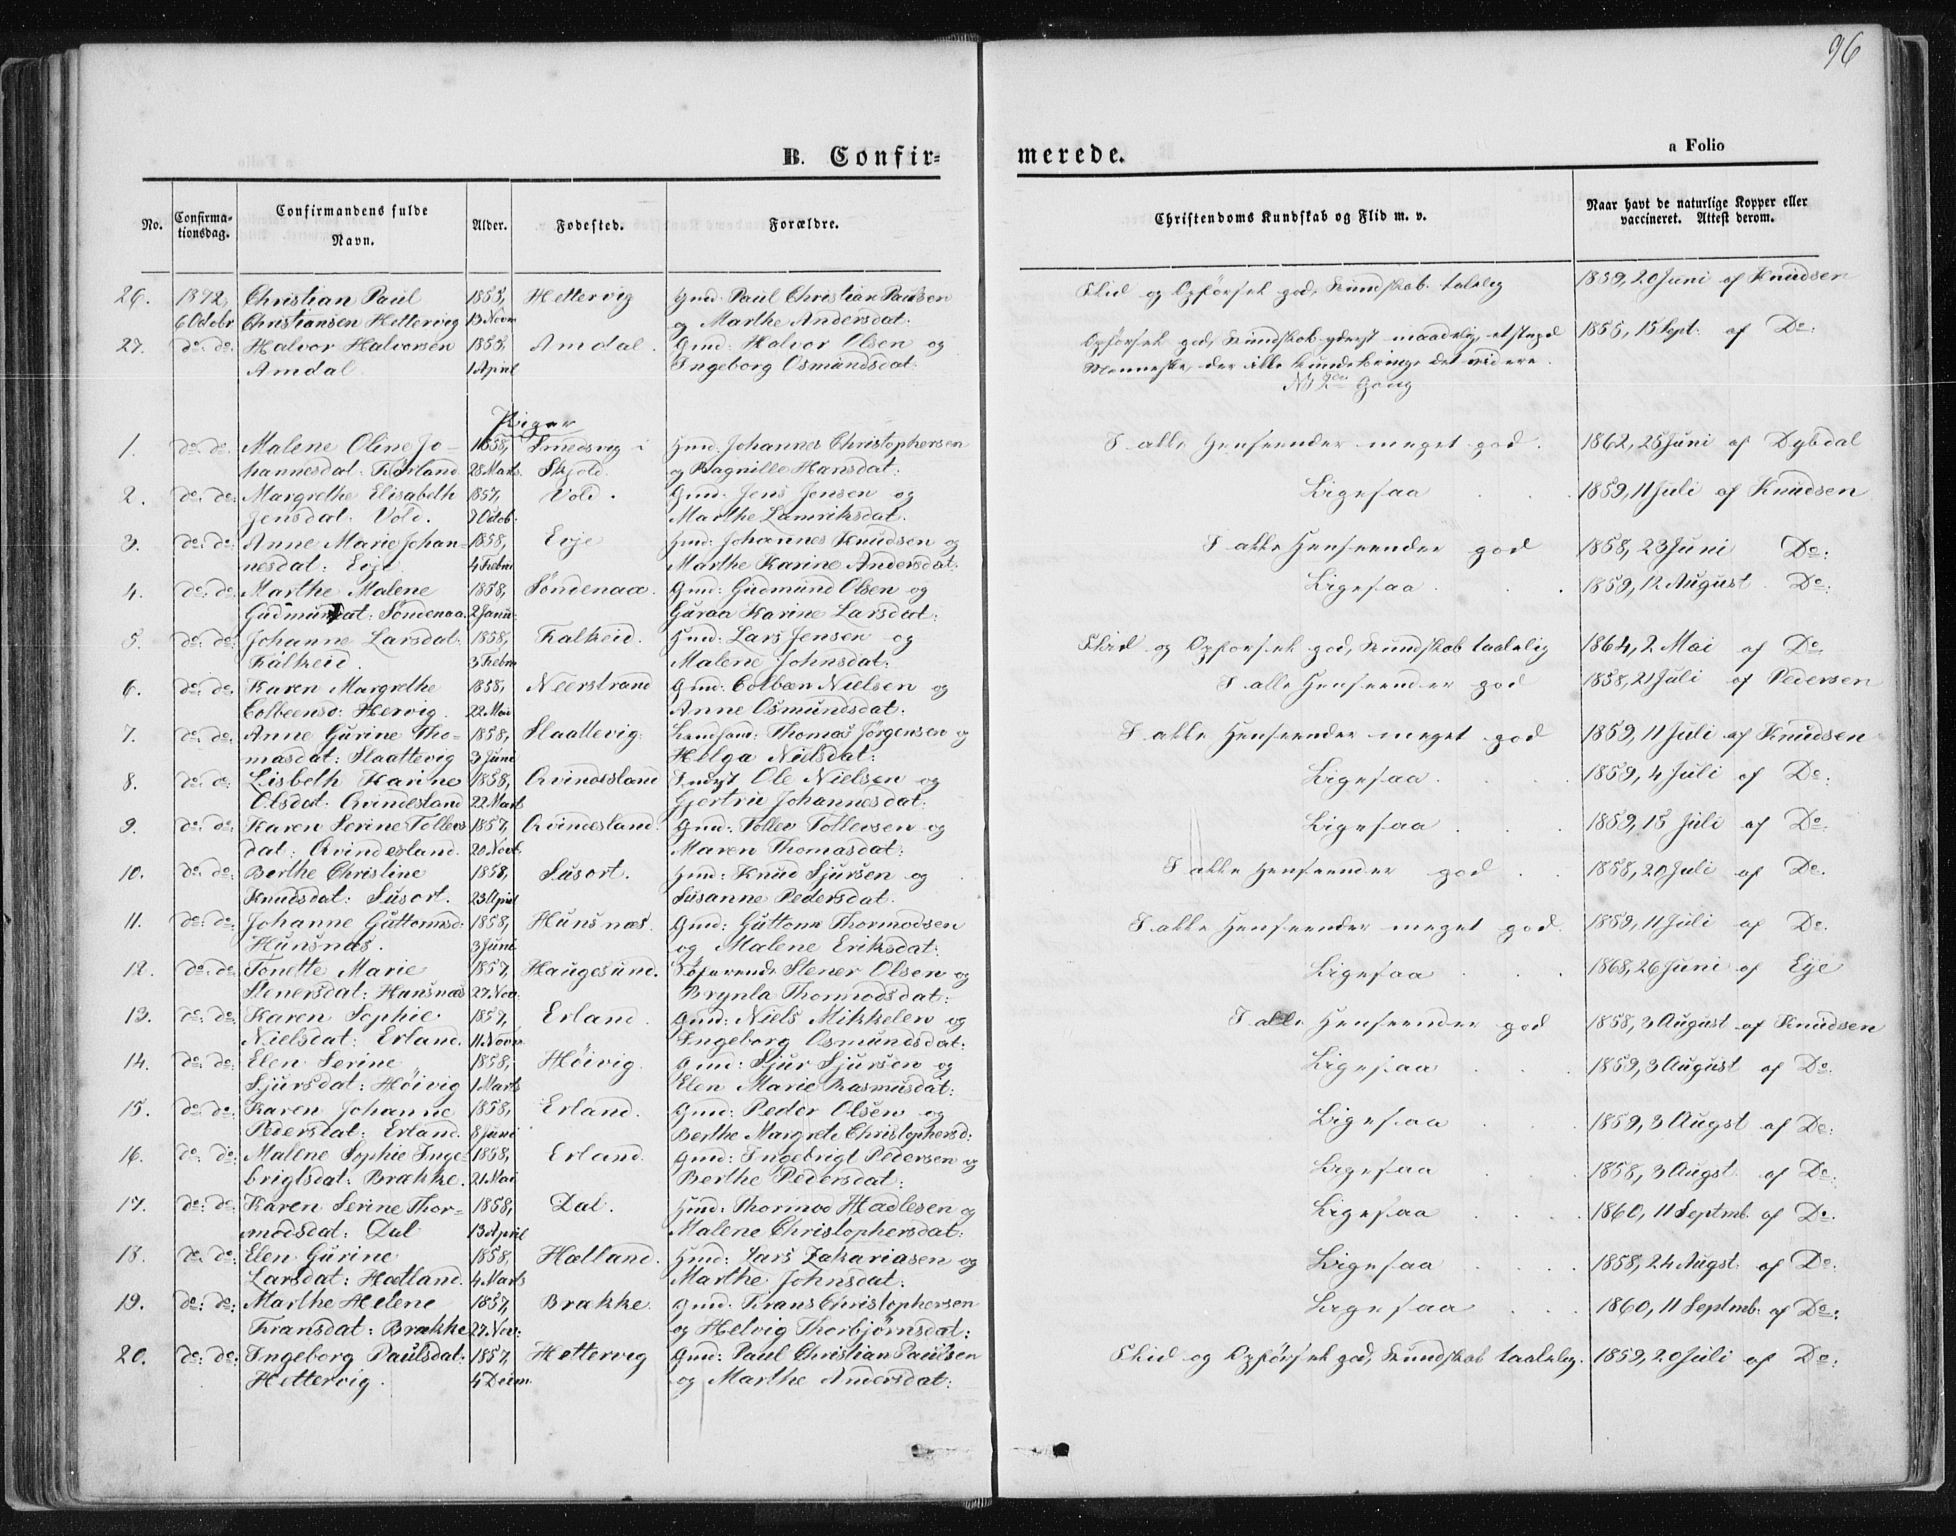 96
B. Confir=
merede.
a Folio
No.
Confirma-
tionsdag.
Confirmandens fulde
Navn.
Alder.
Fødested.
Forældre.
Christendoms Kundskab og Flid m. v.
Naar havt de naturlige Kopper eller
vaccineret. Attest derom.
26. 1872, Christian Paul 1855, Hettervig Gmd: Paul Christian Paulsen Flid og Opførsel god, Kundskab taalelig 1859, 20 Juni af Knudsen
6 Octobr Christiansen Hettervig 13 Novm og Marthe Andersdat:
27. do: do: Halvor Halvorsen 1855, Amdal. Gmd: Halvor Olsen og Opførsel god, Kundskab yderst maadelig, et svagt 1855, 15 Sept: af Do:
Amdal. 1 April Ingeborg Osmundsdat: Menneske, der ikke kunde bringe det videre
Piger
1. do: do: Malene Oline Jo- 1858, Smedsvig i Gmd: Johannes Christophersen I alle Henseender meget god. 1862, 25 Juni af Dybdal
hannesdat: Førland 28 Marts. Skjold. og Ragnille Hansdat:
2. do: do: Margrethe Elisabeth 1857, Vold. Gmd: Jens Jensen og Ligesaa 1859, 11 Juli af Knudsen
Jensdat: Vold. 7 Octob: Marthe Lamriksdat.
3. do: do: Anne Marie Johan- 1858, Evje Gmd: Johannes Knudsen og I alle Henseender god 1858, 23 Juni Do:
nesdat: Evje 4 Febru Marthe Karine Andersdat:
4. do: do: Marthe Malene 1858, Søndenaa. Gmd: Gudmund Olsen og Ligesaa 1859, 12 August Do:
Gudmundat: Søndenaa. 2 Janu: Guraa Karine Larsdat:
5. do: do: Johanne Larsdat: 1858, Falkeid. Gmd: Lars Jensen og Flid og Opførsel god, Kundskab taalelig 1864, 2 Mai af Do.
Falkeid. 3 Febru Malene Johnsdat:
6. do: do: Karen Margrethe 1858, Neerstrand Gmd: Colbeen Nielsen og I alle Henseender god 1858, 21 Juli af Pedersen
Colbeensd: Hervig 22 Mai Anne Osmundsdat:
7. do: do: Anne Gurine Tho- 1858, Slaattevig. Thomas Jørgensen og I alle Henseender meget god 1859, 11 Juli af Knudsen
masdat: Slaattevig 3 Juni Helga Nielsdat:
8. do: do: Lisbeth Karine 1858, Qvindesland Ole Nielsen og Ligesaa. 1859, 4 Juli af Do:
Olsdat: Qvindesland 22 Marts Gjertrue Johannesdat:
9. do: do: Karen Serine Tollevs 1857, Qvindesland. Gmd: Tollev Tollevsen og Ligesaa 1859, 15 Juli af Do.
dat: Qvindesland. 20 Novb. Maren Thomasdat:
10. do: do: Berthe Christine 1858, Susort. Gmd: Knud Sjursen og I alle Henseender god 1858, 20 Juli af Do.
Knudsdat: Susort. 23 April Susanne Pedersdat:
11. do: do: Johanne Guttormsd: 1858, Hunsnæs. Gmd: Guttorm Thormodsen I alle Henseender meget god. 1859, 11 Juli af Do.
Hunsnæs. 3 Juni og Malene Eriksdat:
12. do: do: Tonette Marie 1857, Haugesund. Søfarende Stener Olsen og Ligesaa 1868, 26 Juni af Eje
Stenersdat: Hunsnæs 27 Nov: Brynla Thormodsdat:
13. do: do: Karen Sophie 1857, Erland. Gmd: Niels Mikkelen og I alle Henseender god 1858, 3 August af Knudsen
Nielsdat: Erland. 11 Novr Ingeborg Osmundsdat:
14. do: do: Elen Serine 1858, Høivig. Gmd: Sjur Sjursen og Ligesaa 1859, 3 August af Do.
Sjursdat: Høivig 1 Marts Elen Marie Rasmusdat:
15. do: do: Karen Johanne 1858, Erland. Gmd: Peder Olsen og Ligesaa 1859, 3 Augst af Do:
Pedersdat: Erland. 8 Juni Berthe Margrete Christophersd:
16. do: do: Malene Sophie Inge- 1858, Erland. Gmd: Ingebrigt Pedersen og Ligesaa 1858, 3 Augst af Do:
brigtsdat: Brække. 21 Mai Berthe Pedersdat:
17. do: do: Karen Serine Thor- 1858, Dal. Gmd: Thormod Hadlesen og Ligesaa 1860, 11 Septmb. af Do.
modsdat: Dal 13 April Malene Christophersdat:
18. do: do: Elen Gurine 1858, Hætland. Gmd: Lars Zakariasen og Ligesaa 1858, 24 Augst. af Do.
Larsdat: Hætland. 4 Marts Marthe Johnsdat:
19. do: do: Marthe Helene 1857, Brække. Gmd: Frans Christophersen Ligesaa 1860, 11 Septmb: af Do:
Fransdat: Brække 27 Nov: og Helvig Thorbjørnsdat:
20. do: do: Ingeborg Paulsdat: 1857, Hettervig Gmd: Paul Christian Paulsen Flid og Opførsel god, Kundskab taalelig. 1859, 20 Juli af Do:
Hettervig. 4 Decm og Marthe Andersdat: